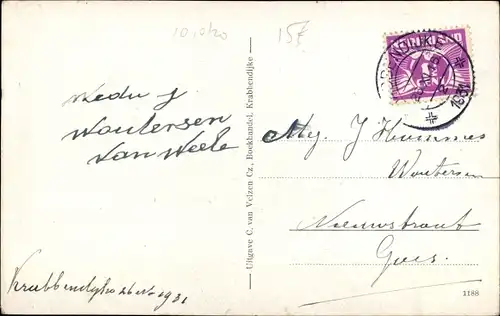 10.0x20
15f
Wedu J
Woutersen
van Weele
Krabbendijke 26 Nov 1931
Uitgave C. van Velzen Cz., Boekhandel, Krabbendijke
Mej. J Hummes
Woutersen
Nieuwstraat
Goes.
1188
1931